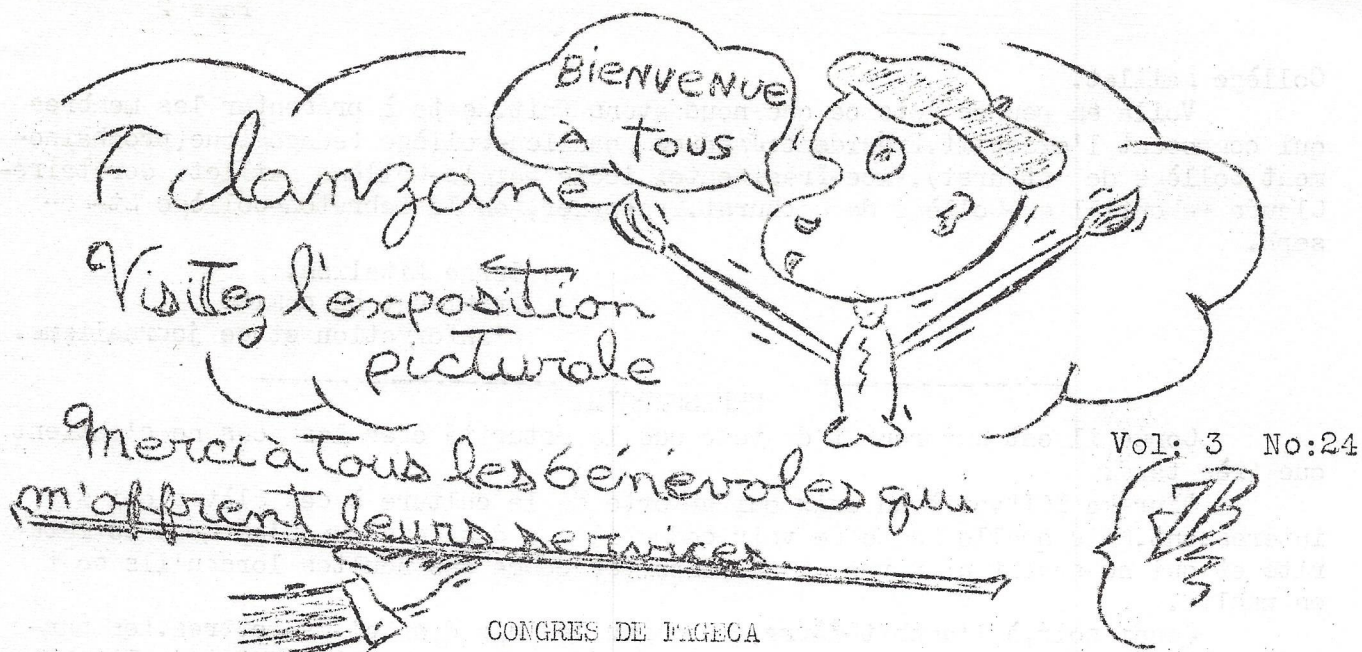 BIENVENUE
À TOUS
Flanzane
Visitez l'exposition
picturale
Merci à tous les bénévoles qui
m'offrent leurs services.
Vol: 3 No:24
CONGRES DE